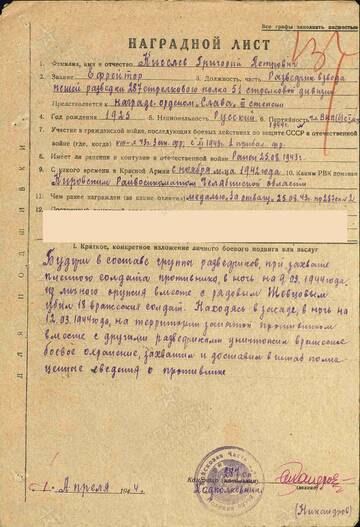 Все графы заполнять полностью
137
НАГРАДНОЙ ЛИСТ
1. Фамилия, имя и отчество Киселев Григорий Петрович
2. Звание Ефрейтор 3. Должность, часть Разведчик взвода
пешей разведки 287 стрелкового полка 51 стрелковой дивизии
Представляется к награде орденом „Слава" III степени
4. Год рождения 1925 5. Национальность Русский 6. Партийность
1944г.
7. Участие в гражданской войне, последующих боевых действиях по защите СССР и отечественной
войне (где, когда) 2 прибал. фр.
8. Имеет ли ранения и контузии в отечественной войне Ранен 25.08.1943г.
9. С какого времени в Красной Армии с ноября м-ца 1942 года 10. Каким РВК призван
Кировским Райвоенкоматом Челябинской области
11. Чем ранее награжден (за какие отличия) медалью „За отвагу"
12. Постоянный
I. Краткое, конкретное изложение личного боевого подвига или заслуг
Будучи в составе группы разведчиков, при захвате
пленного солдата противника, в ночь на 9.03.1944 года,
из личного оружия вместе с рядовым
убили 18 вражеских солдат. Находясь в засаде, в ночь на
12.03.1944 года, на территории занятой противником
вместе с другими разведчиками уничтожил вражеское
боевое охранение, захватил и доставил в штаб полка
ценные сведения о противнике
Командир 287 сп
Подполковник
(Никандров)
„1" Апреля 1944г.
ДЛЯ ПОДШИВКИ